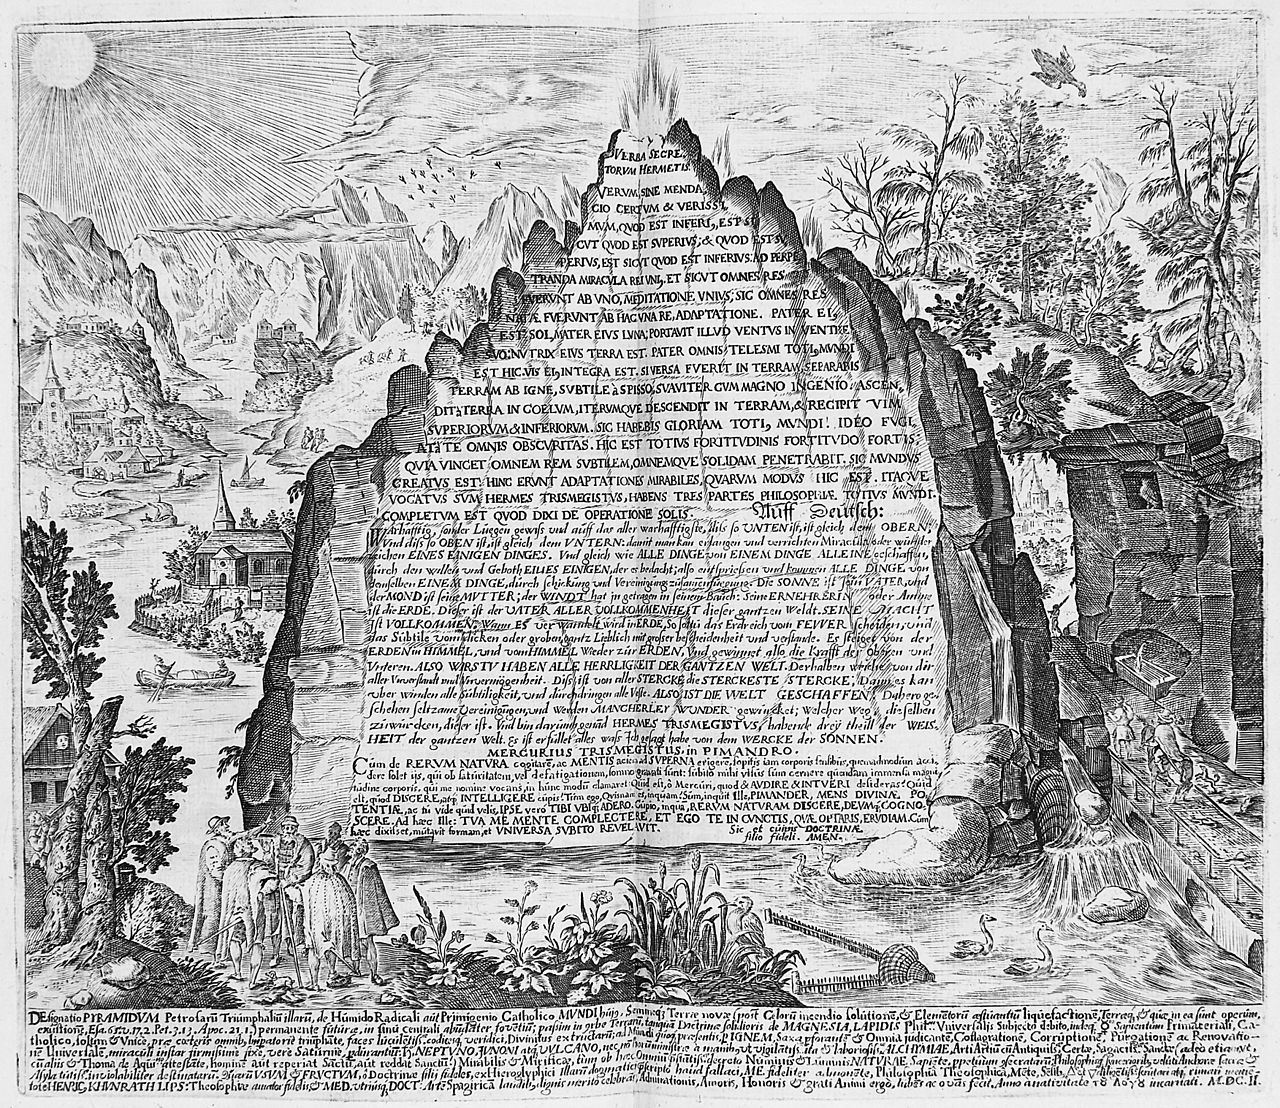 VERBA SECRE
TORVM HERMETIS.
VERVM, SINE MENDA,
CIO CERTVM & VERISSI,
MVM, QVOD EST INFERI,, EST SI,
CVT QVOD EST SVPERIVS; & QVOD EST SV,
PERIVS, EST SICVT QVOD EST INFERIVS: AD PERPE
TRANDA MIRACVLA REI VNI,, ET SICVT OMNES RES
FVERVNT AB VNO, MEDITATIONE VNIVS; SIC OMNES RES
NATÆ FVERVNT AB HAC VNA RE, ADAPTATIONE. PATER EI,
EST SOL, MATER EIVS LVNA; PORTAVIT ILLVD VENTVS IN VENTRE
SVO: NVTRIX EIVS TERRA EST. PATER OMNIS TELESMI TOTI, MVNDI
EST HIC. VIS EI, INTEGRA EST. SI VERSA FVERIT IN TERRAM, SEPARABIS
TERRAM AB IGNE, SVBTILE à SPISSO, SVAVITER CVM MAGNO INGENIO: ASCEN,
DIT à TERRA IN COELVM, ITERVMQVE DESCENDIT IN TERRAM, & RECIPIT VIM
SVPERIORVM & INFERIORVM. SIC HABEBIS GLORIAM TOTI, MVNDI. IDEO FVGI,
AT à TE OMNIS OBSCVRITAS. HIC EST TOTIVS FORTITVDINIS FORTITVDO FORTIS:
QVIA VINCET OMNEM REM SVBTILEM, OMNEMQVE SOLIDAM PENETRABIT. SIC MVNDVS
CREATVS EST: HINC ERVNT ADAPTATIONES MIRABILES, QVARVM MODVS HIC EST. ITAQVE
VOCATVS SVM HERMES TRISMEGISTVS, HABENS TRES PARTES PHILOSOPHIÆ TOTIVS MVNDI.
COMPLETVM EST QVOD DIXI DE OPERATIONE SOLIS. Auff Deutsch:
Warhafftig, sonder Lüegen gewiß und auff das aller warhafftigste, diß so VNTEN ist, ist gleich dem OBERN:
Vnd diß so OBEN ist, ist gleich dem VNTERN: damit man kan erlangen und verrichten Miracula oder wunder
zeichen EINES EINIGEN DINGES. Vnd gleich wie ALLE DINGE von EINEM DINGE ALLEINE geschaffen,
durch den willen und Geboth EINES EINIGEN, der es bedacht; also entspriesen und kommen ALLE DINGE von
demselben EINEM DINGE, durch schickung und Vereinigung zusamenfuegung. DIE SONNE ist sein VATER, und
der MOND ist seine MVTTER; der WINDT hat in getragen in seinem Bauch: Seine ERNEHRERIN oder Amme
ist die ERDE. Dieser ist der VATER ALLER VOLLKOMMENHEIT dieser gantzen Weldt. SEINE MACHT
ist VOLLKOMMEN; Wann ES verwandelt wird in ERDE, So soltu das Erdreich vom FEWER scheiden, und
das Subtile vom dicken oder groben, gantz Lieblich mit groser bescheidenheit und verstande. Es steiget von der
ERDEN in HIMMEL, und vom HIMMEL Wieder zur ERDEN, Vnd gewinnet also die Krafft der obern und
Vnteren. ALSO WIRSTV HABEN ALLE HERRLIGKEIT DER GANTZEN WELT. Derhalben weiche von dir
aller Vnverstandt und Vnvermögenheit. Diß ist von aller STERCKE die STERCKESTE STERCKE; Dann es kan
vber winden alle Subtiligkeit, und durchdringen alle Veste. ALSO IST DIE WELT GESCHAFFEN; Dahero ge,
schehen seltzame Vereinigungen, und Werden MANCHERLEY WVNDER gewircket; Welcher Weg, die selben
zuwürcken, dieser ist. Vnd bin darumb genād HERMES TRISMEGISTVS, habende drey theill der WEIS,
HEIT der gantzen Welt. Es ist erfüllet alles waß Ich gesagt habe von dem WERCKE der SONNEN.
MERCURIUS TRISMEGISTUS, in PIMANDRO.
Cùm de RERVM NATVRA cogitarē, ac MENTIS aciem ad SVPERNA erigerē, sopitis iam corporis sensibus, quemadmodum acci,
dere solet iis, qui ob saturitatem, vel defatigationem, somno gravati sunt: subito mihi visus sum cernere quendam immensa magni,
tudine corporis, qui me nomine vocans, in hunc modū clamaret: Quid est, ô Mercuri, quod & AVDIRE & INTVERI desideras? Quid
est, quod DISCERE, atq; INTELLIGERE cupis? Tùm ego, Quisnam es, inquam? Sum, inquit Ille, PIMANDER, MENS DIVINÆ PO,
TENTIÆ, ac tu vide quid velis, IPSE verò TIBI VBIq; ADERO. Cupio, inqua, RERVM NATVRAM DISCERE, DEVMq; COGNO,
SCERE. Ad hæc Ille: TVA ME MENTE COMPLECTERE, ET EGO TE IN CVNCTIS, QVÆ OPTARIS, ERVDIAM. Cùm
hæc dixisset, mutavit formam, et VNIVERSA SVBITO REVELAVIT. Sic et cuiuis DOCTRINÆ
filio fideli. AMEN.
DEsignatio PYRAMIDVM Petrosarū Triumphaliū illarū, de Húmido Radicali aūt Primigenio Catholico MVNDI hui,